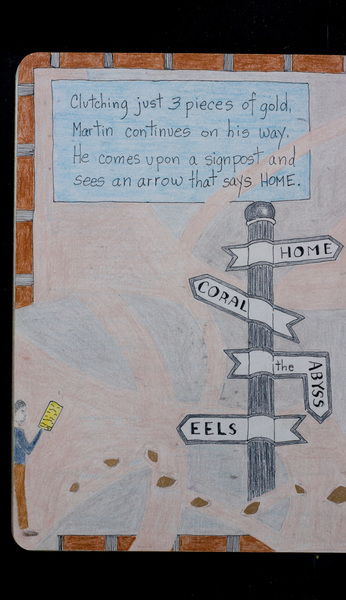 Clutching just 3 pieces of gold,
Martin continues on his way.
He comes upon a signpost and
sees an arrow that says HOME.
HOME
CORAL
the
ABYSS
EELS